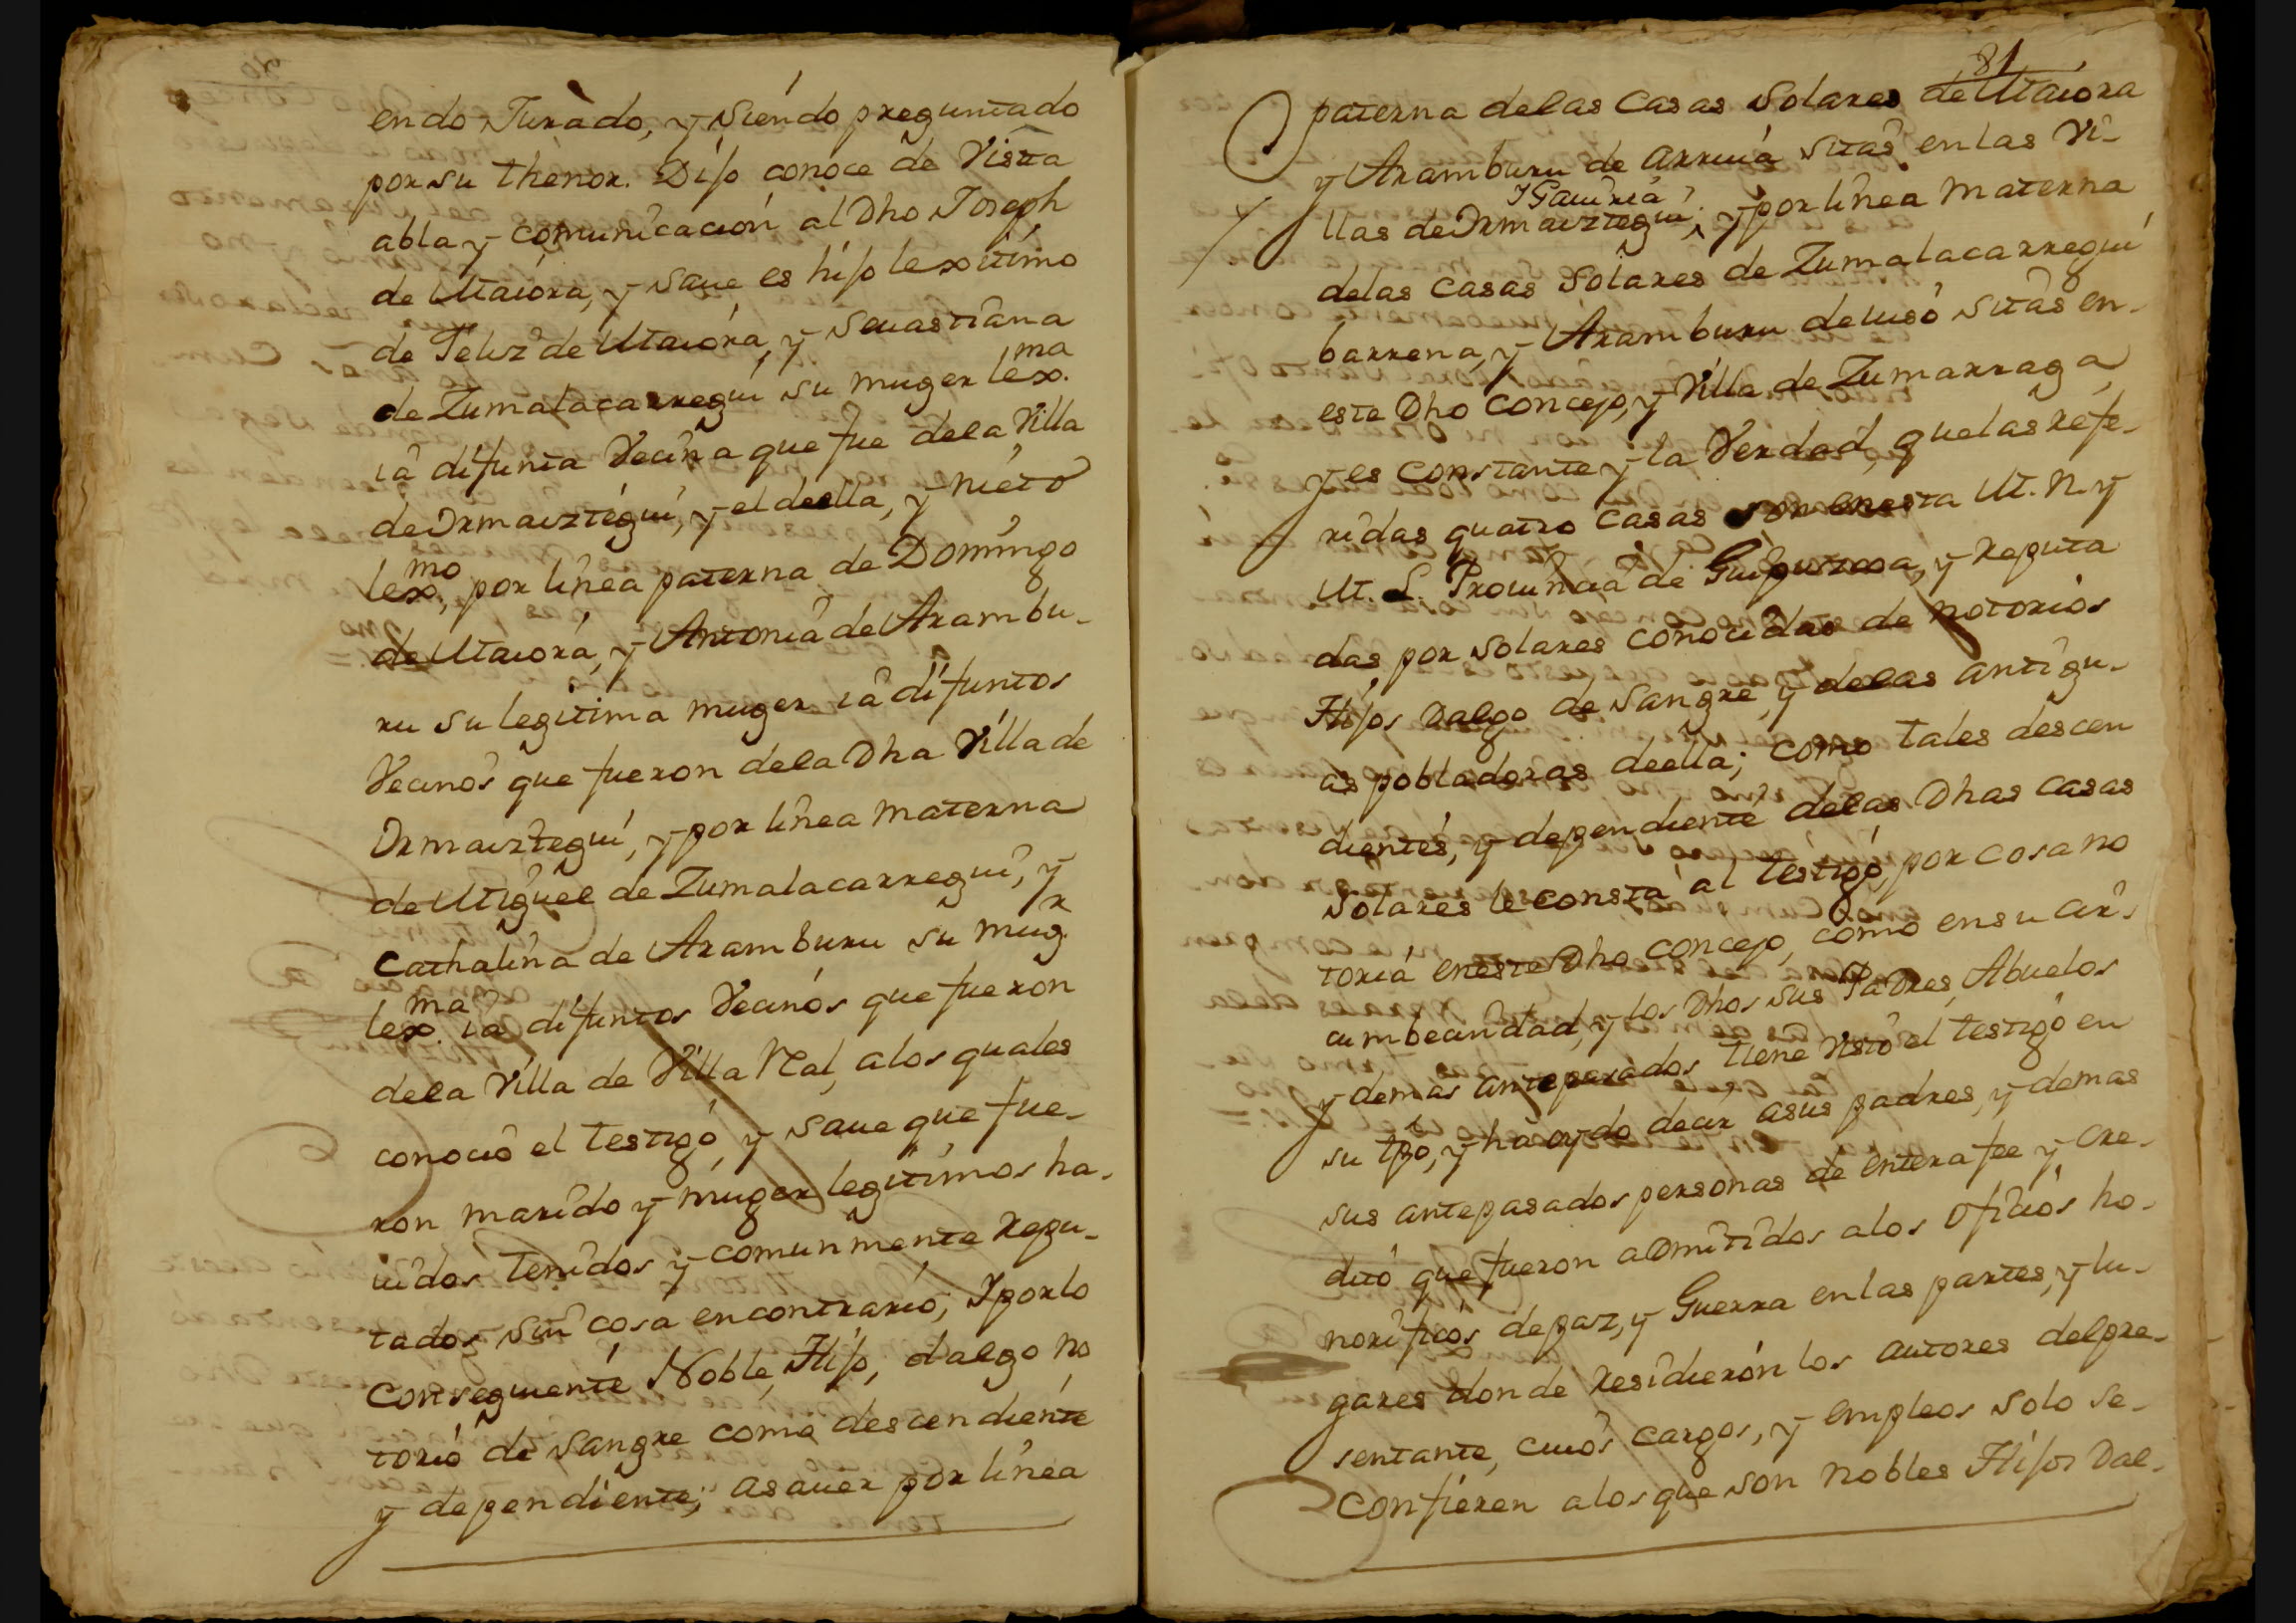 endo Jurado, y siendo preguntado
por su thenor. Dijo conoce de Vista
abla y comunicacion al Dho Joseph
de Maiora, y saue es hijo lexitimo
de Feliz de Maiora, y Seuastiana
de Zumalacarregui su muger lex.ma
ia difunta Vecina que fue dela Villa
de Ormaiztegui, y el de ella, y nieto
lex.mo, por linea paterna de Domingo
de Maiora, y Antonia de Arambu-
ru su legitima muger ia difuntos
Vecinos que fueron dela Dha Villa de
Ormaiztegui, y por linea Materna
de Miguel de Zumalacarregui, y
Cathalina de Aramburu su mug.r
lex.ma ia difuntos Vecinos que fueron
dela Villa de Villa Real, alos quales
conocio el testigo, y saue que fue-
ron marido y muger legitimos ha-
uidos tenidos y comunmente Repu-
tados sin cosa encontrario; Y por lo
Consequente Noble, Hijo, dalgo no
torio de sangre como descendiente
y dependiente; asauer por linea
81
paterna delas Casas Solares de Maiora
y Aramburu de arriua sitas en las Vi-
Y Gauiria
llas de Ormaiztegui, y por linea Materna
delas Casas Solares de Zumalacarregui
barrena, y Aramburu de iuso sitas en-
este Dho Concejo, y Villa de Zumarraga
y es constante y la Verdad, que las Refe-
ridas quatro Casas son en esta M. N. y
M. L. Prouincia de Guipuzcoa, y Reputa
das por solares conocidas de notorios
Hijos Dalgo de Sangre, y delas antigu-
as pobladoras de ella; como tales descen
dientes, y dependiente delas Dhas Casas
Solares le consta al testigo, por cosa no
toria en este Dho Concejo, como en su cir-
cumbecindad, y los Dhos sus Padres, Abuelos
y demas antepasados tiene Visto el testigo en
su tpo, y ha oydo decir asus padres, y demas
sus antepasados personas de entera fee y cre-
dito que fueron admitidos alos oficios ho-
norificos de paz, y Guerra en las partes, y lu-
gares donde Residieron los autores del pre-
sentante, cuios cargos, y empleos solo se-
confieren alos que son nobles Hijos Dal-